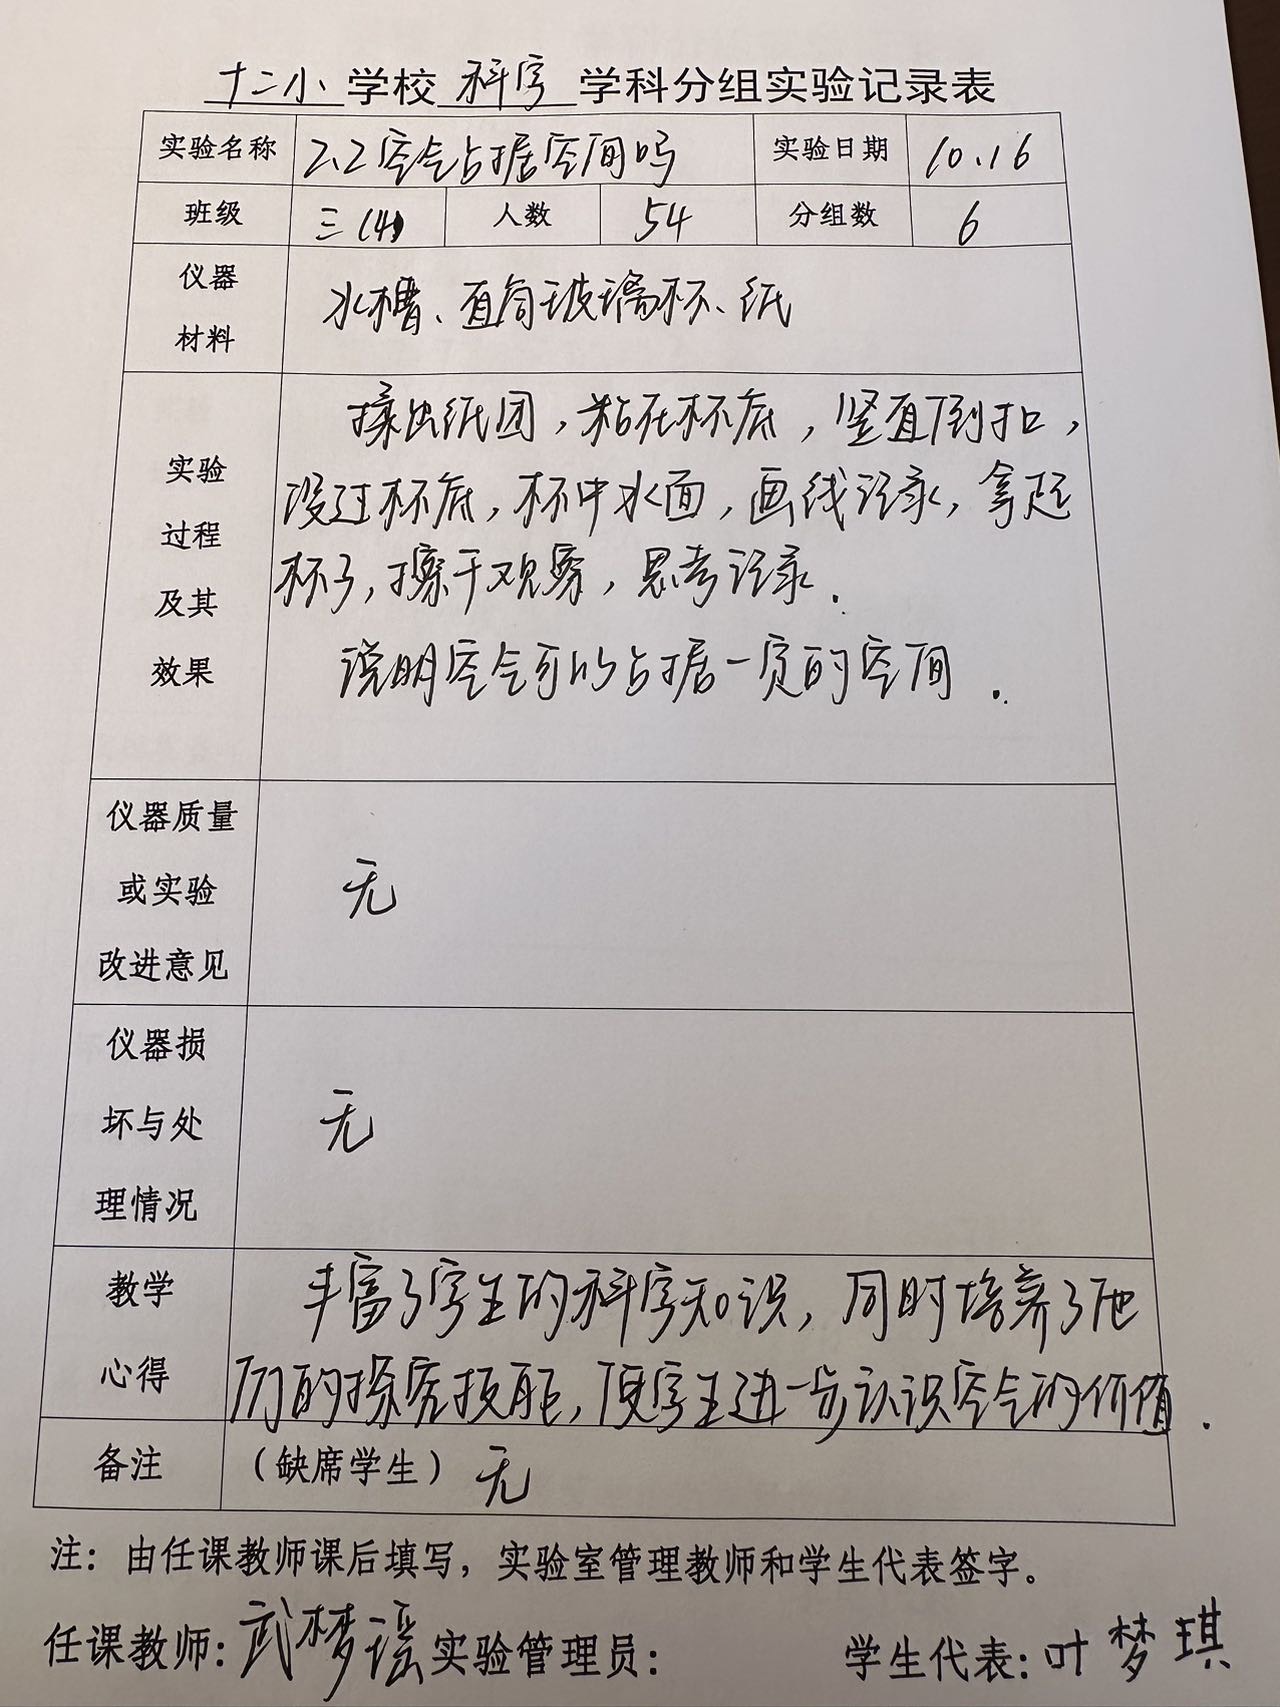 十二小 学校 科学 学科分组实验记录表
实验名称 2.2空气占据空间吗 实验日期 10.16
班级 三(4) 人数 54 分组数 6
仪器
材料
水槽、直筒玻璃杯、纸
实验
过程
及其
效果
揉出纸团，粘在杯底，竖直倒扣，
没过杯底，杯中水面，画线记录，拿起
杯子，擦干观察，思考记录.
说明空气可以占据一定的空间.
仪器质量
或实验
改进意见
无
仪器损
坏与处
理情况
无
教学
心得
丰富了学生的科学知识，同时培养了他
们的探究技能，使学生进一步认识空气的价值.
备注 （缺席学生） 无
注：由任课教师课后填写，实验室管理教师和学生代表签字。
任课教师：武梦瑶 实验管理员： 学生代表：叶梦琪